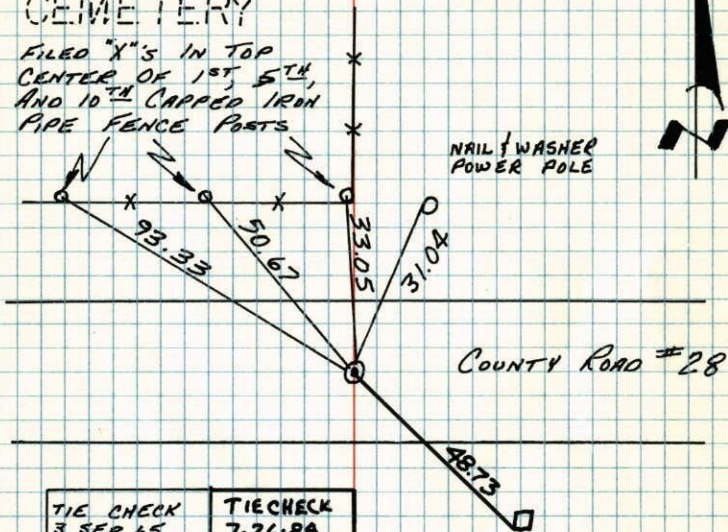 CEMETERY
FILED "X"'S IN TOP
CENTER OF 1ST, 5TH,
AND 10TH CAPPED IRON
PIPE FENCE POSTS
NAIL & WASHER
POWER POLE
93.33
50.67
33.05
31.04
COUNTY ROAD #28
48.73
TIE CHECK
TIE CHECK